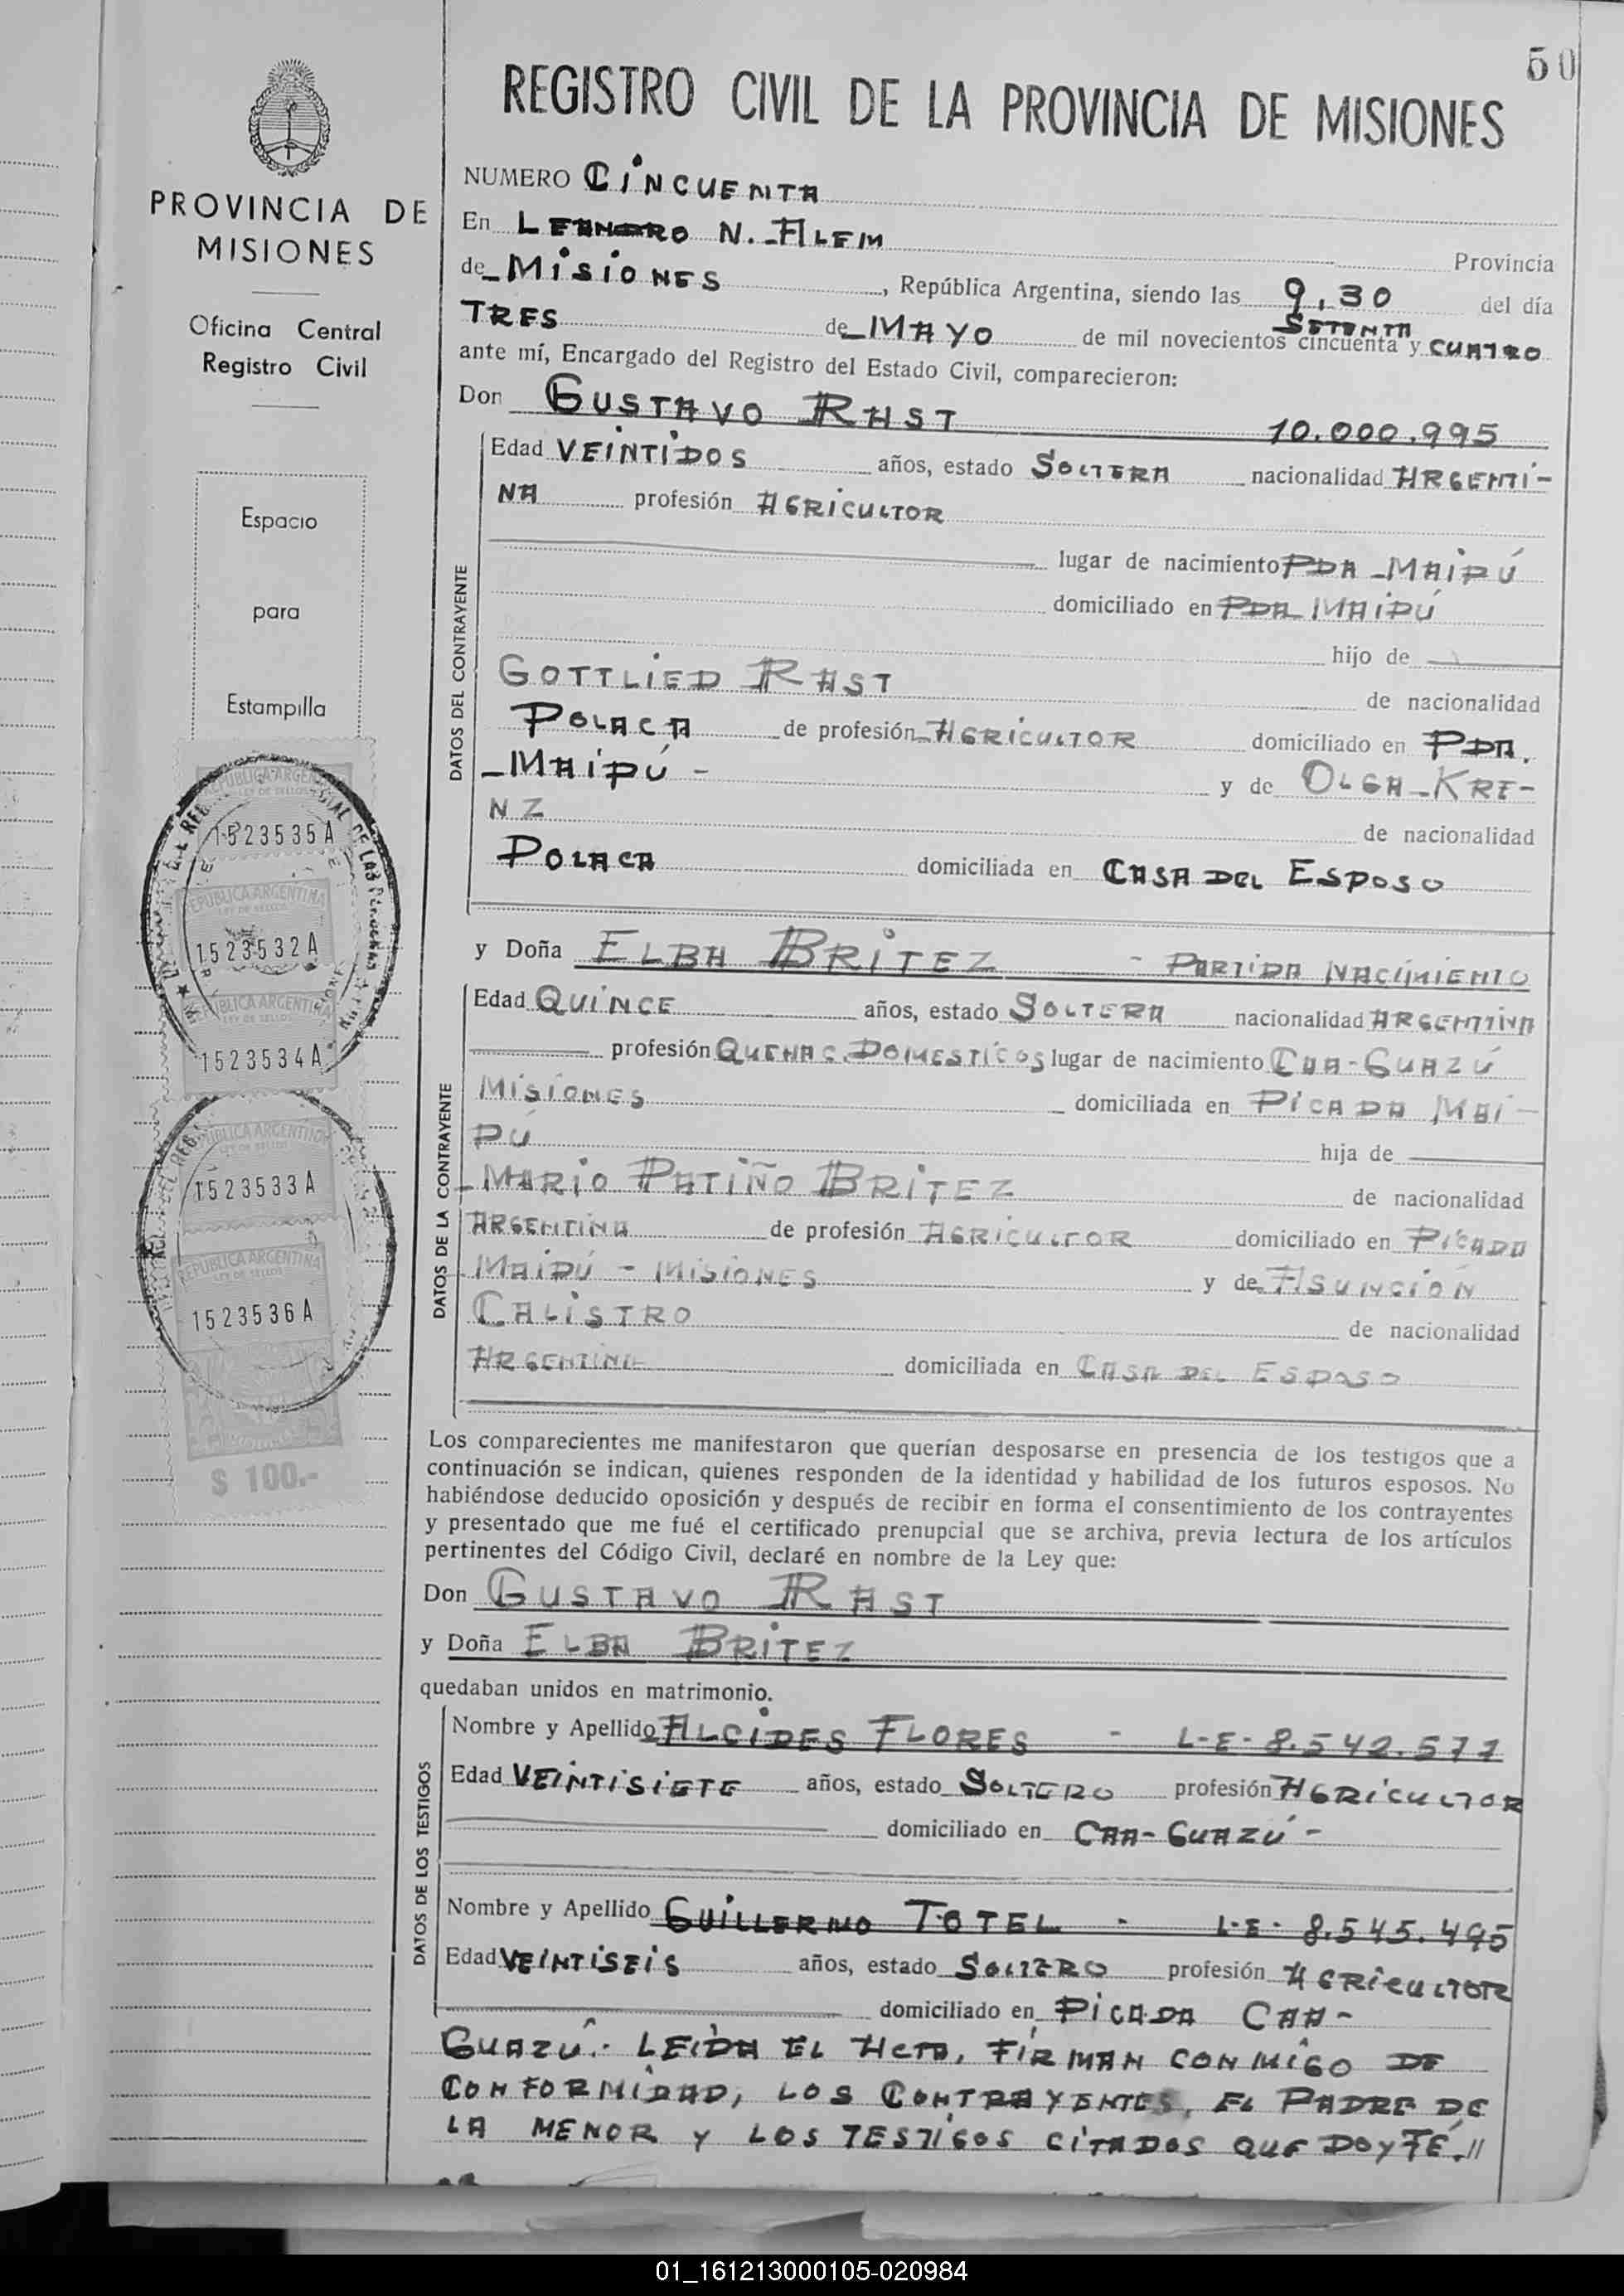 50
REGISTRO CIVIL DE LA PROVINCIA DE MISIONES
PROVINCIA DE
MISIONES
Oficina Central
Registro Civil
Espacio
para
Estampilla
REPUBLICA ARGENTINA
LEY DE SELLOS
1523535 A
REPUBLICA ARGENTINA
LEY DE SELLOS
1523532 A
REPUBLICA ARGENTINA
LEY DE SELLOS
1523534 A
REPUBLICA ARGENTINA
1523533 A
REPUBLICA ARGENTINA
LEY DE SELLOS
1523536 A
$ 100.-
NUMERO CINCUENTA
En LEANDRO N. ALEM Provincia
de MISIONES, República Argentina, siendo las 9,30 del día
TRES de MAYO de mil novecientos cincuenta SETENTA y CUATRO
ante mí, Encargado del Registro del Estado Civil, comparecieron:
Don GUSTAVO RAST 10.000.995
DATOS DEL CONTRAYENTE
Edad VEINTIDOS años, estado SOLTERA nacionalidad ARGENTI-
NA profesión AGRICULTOR
lugar de nacimiento PDA MAIPÚ
domiciliado en PDA MAIPÚ
hijo de
GOTTLIED RAST de nacionalidad
POLACA de profesión AGRICULTOR domiciliado en PDA.
MAIPÚ - y de OLGA KRE-
NZ de nacionalidad
POLACA domiciliada en CASA DEL ESPOSO
y Doña ELBA BRITEZ - PARTIDA NACIMIENTO
DATOS DE LA CONTRAYENTE
Edad QUINCE años, estado SOLTERA nacionalidad ARGENTINA
profesión QUEHAC. DOMESTICOS lugar de nacimiento CAA-GUAZÚ
MISIONES domiciliada en PICADA MAI-
PÚ hija de
MARIO PATIÑO BRITEZ de nacionalidad
ARGENTINA de profesión AGRICULTOR domiciliado en PICADA
MAIPÚ - MISIONES y de ASUNCIÓN
CALISTRO de nacionalidad
ARGENTINA domiciliada en CASA DEL ESPOSO
Los comparecientes me manifestaron que querían desposarse en presencia de los testigos que a
continuación se indican, quienes responden de la identidad y habilidad de los futuros esposos. No
habiéndose deducido oposición y después de recibir en forma el consentimiento de los contrayentes
y presentado que me fué el certificado prenupcial que se archiva, previa lectura de los artículos
pertinentes del Código Civil, declaré en nombre de la Ley que:
Don GUSTAVO RAST
y Doña ELBA BRITEZ
quedaban unidos en matrimonio.
DATOS DE LOS TESTIGOS
Nombre y Apellido ALCIDES FLORES - L-E- 8.542.571
Edad VEINTISIETE años, estado SOLTERO profesión AGRICULTOR
domiciliado en CAA-GUAZÚ -
Nombre y Apellido GUILLERMO TOTEL - L-E- 8.545.495
Edad VEINTISEIS años, estado SOLTERO profesión AGRICULTOR
domiciliado en PICADA CAA-
GUAZÚ.- LEIDA EL ACTA, FIRMAN CONMIGO DE
CONFORMIDAD, LOS CONTRAYENTES, EL PADRE DE
LA MENOR Y LOS TESTIGOS CITADOS QUE DOY FÉ.//
01_161213000105-020984